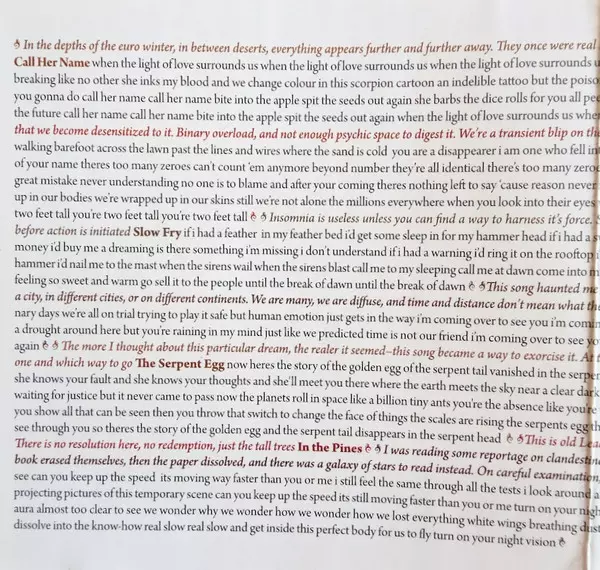 In the depths of the euro winter, in between deserts, everything appears further and further away. They once were real
Call Her Name when the light of love surrounds us when the light of love surrounds us when the light of love surrounds u
breaking like no other she inks my blood and we change colour in this scorpion cartoon an indelible tattoo but the poiso
you gonna do call her name call her name bite into the apple spit the seeds out again she barbs the dice rolls for you all pee
the future call her name call her name bite into the apple spit the seeds out again when the light of love surrounds us whe
that we become desensitized to it. Binary overload, and not enough psychic space to digest it. We're a transient blip on th
walking barefoot across the lawn past the lines and wires where the sand is cold you are a disappearer i am one who fell in
of your name theres too many zeroes can't count 'em anymore beyond number they're all identical there's too many zero
great mistake never understanding no one is to blame and after your coming theres nothing left to say 'cause reason never
up in our bodies we're wrapped up in our skins still we're not alone the millions everywhere when you look into their eyes
two feet tall you're two feet tall you're two feet tall Insomnia is useless unless you can find a way to harness it's force. S
before action is initiated Slow Fry if i had a feather in my feather bed i'd get some sleep for my hammer head if i had a s
money i'd buy me a dreaming is there something i'm missing i don't understand if i had a warning i'd ring it on the rooftop i
hammer i'd nail me to the mast when the sirens wail when the sirens blast call me to my sleeping call me at dawn come into m
feeling so sweet and warm go sell it to the people until the break of dawn until the break of dawn This song haunted me
a city, in different cities, or on different continents. We are many, we are diffuse, and time and distance don't mean what the
nary days we're all on trial trying to play it safe but human emotion just gets in the way i'm coming over to see you i'm comin
a drought around here but you're raining in my mind just like we predicted time is not our friend i'm coming over to see yo
again The more I thought about this particular dream, the realer it seemed–this song became a way to exorcise it. At t
one and which way to go The Serpent Egg now heres the story of the golden egg of the serpent tail vanished in the serpen
she knows your fault and she knows your thoughts and she'll meet you there where the earth meets the sky near a clear dark
waiting for justice but it never came to pass now the planets roll in space like a billion tiny ants you're the absence like you're
you show all that can be seen then you throw that switch to change the face of things the scales are rising the serpents egg th
see through you so theres the story of the golden egg and the serpent tail disappears in the serpent head This is old Lea
There is no resolution here, no redemption, just the tall trees In the Pines I was reading some reportage on clandestin
book erased themselves, then the paper dissolved, and there was a galaxy of stars to read instead. On careful examination,
see can you keep up the speed its moving way faster than you or me i still feel the same through all the tests i look around a
projecting pictures of this temporary scene can you keep up the speed its still moving faster than you or me turn on your nigh
aura almost too clear to see we wonder why we wonder how we wonder how we lost everything white wings breathing dust
dissolve into the know-how real slow real slow and get inside this perfect body for us to fly turn on your night vision